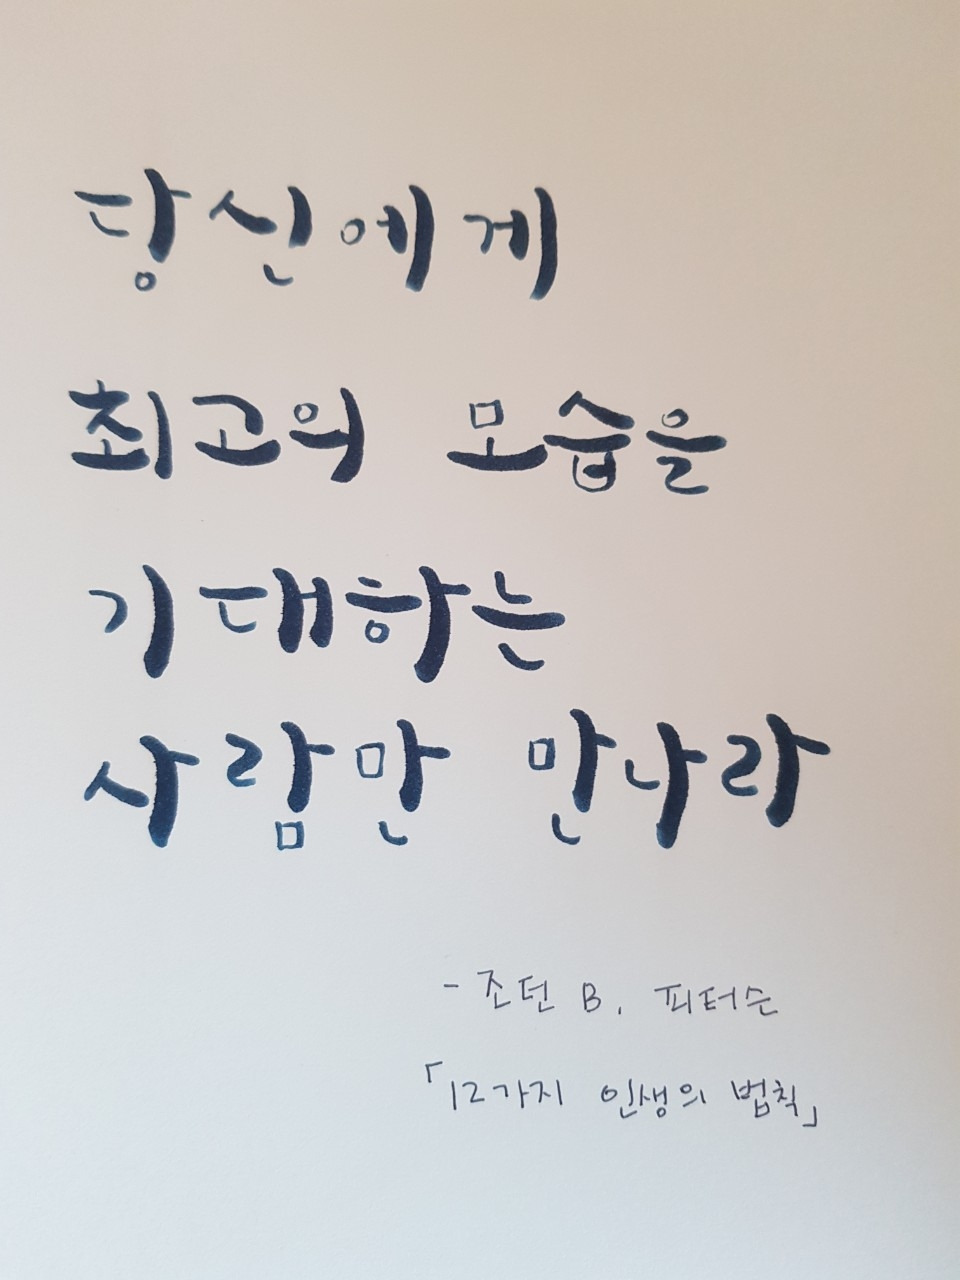 당신에게
최고의 모습을
기대하는
사람만 만나라
- 조던 B. 피터슨
「12가지 인생의 법칙」